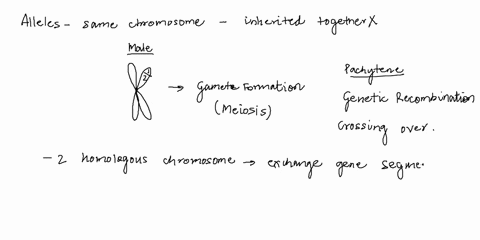 Alleles - same chromosome - inherited together X
Male
→ Gamete Formation
(Meiosis)
Pachytene
Genetic Recombination
Crossing over.
- 2 homologous chromosome → exchange gene segme